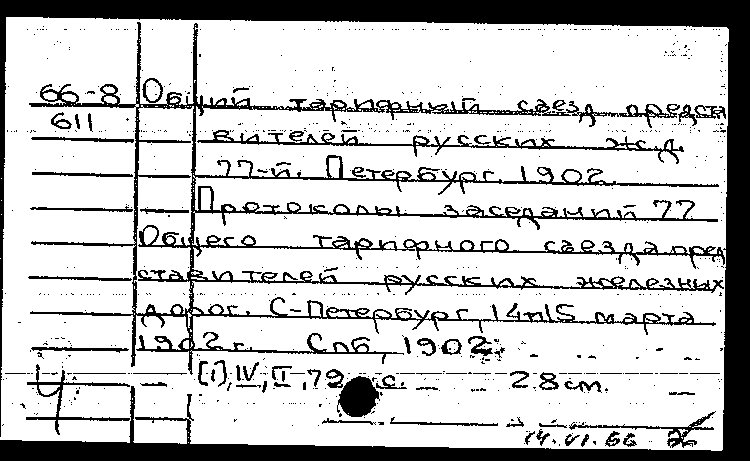 66-8 Общий тарифный съезд предста
611 вителей русских ж.д.
77-й. Петербург. 1902.
Протоколы заседаний 77
Общего тарифного съезда пред
ставителей русских железных
дорог. С-Петербург, 14 и 15 марта
1902 г. Спб, 1902.
[1], IV, II, 79 с. 28 см.
Ч
14.VI.66